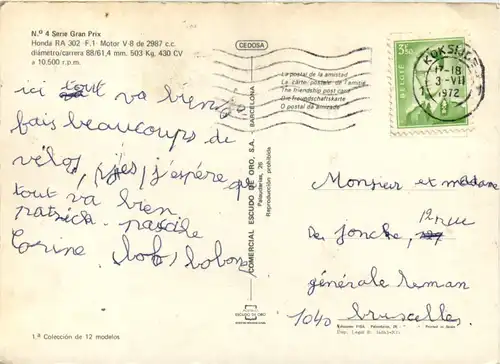 N.º 4 Serie Gran Prix
Honda RA 302 - F.1 - Motor V-8 de 2987 c.c.
diámetro/carrera 88/61,4 mm. 503 Kg. 430 CV
a 10.500 r.p.m.
CEDOSA
La postal de la amistad
La carte postale de l'amitié
The friendship post card
Die freundschaftskarte
O postal da amizade
ici tout va bien
fais beaucoups de
vélos, j'espère que
tout va bien
patrick pascile
Corine, bob, bobon
COMERCIAL ESCUDO DE ORO, S.A. - BARCELONA
Palaudarias, 26
Reproducción prohibida
BELGIE
3,50
KOKSIJDE
17-18
3-VII
1972
Monsieur et madame
De Joncke, 12 rue
générale Leman
1040 bruscelles
ESCUDO DE ORO
1.ª Colección de 12 modelos